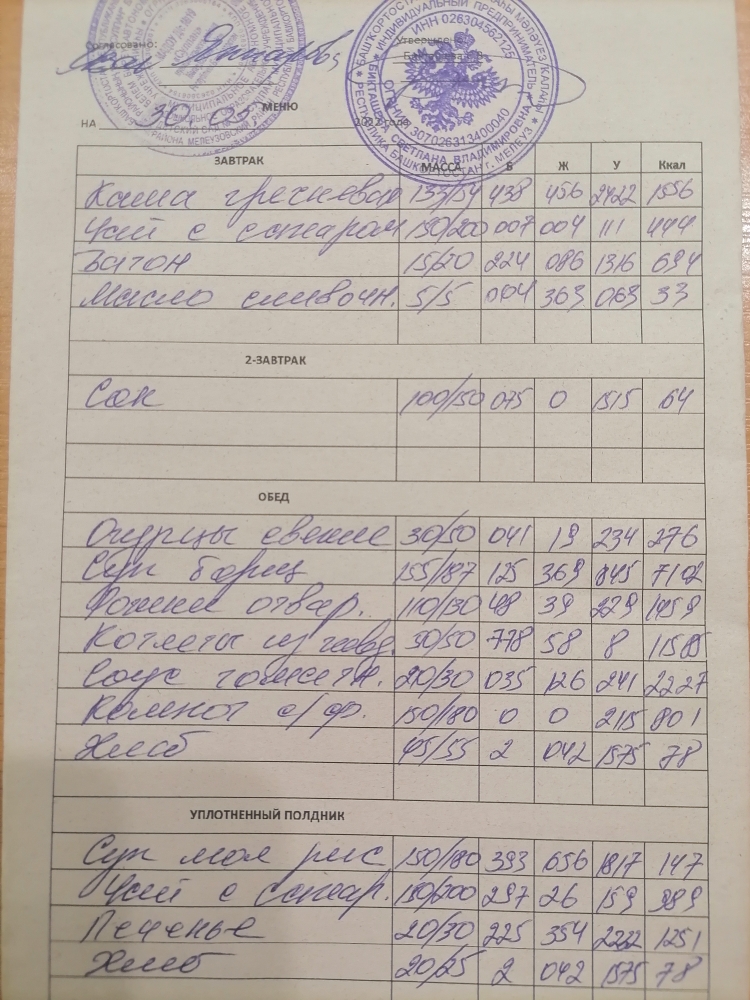 Согласовано:
Утверждено
ИНДИВИДУАЛЬНЫЙ ПРЕДПРИНИМАТЕЛЬ
ИНН 026304562125
БИКТАШЕВА СВЕТЛАНА ВЛАДИМИРОВНА
РЕСПУБЛИКА БАШКОРТОСТАН г. МЕЛЕУЗ
МЕНЮ
НА 30.05. 2022 года
ЗАВТРАК МАССА Б Ж У Ккал
Каша гречневая 133/154 438 456 2422 1556
Чай с сахаром 150/200 007 004 111 444
Батон 15/20 224 086 1316 694
Масло сливочн. 5/5 004 363 063 33
2-ЗАВТРАК
Сок 100/150 075 0 1515 64
ОБЕД
Огурцы свежие 30/50 041 19 234 276
Суп борщ 155/187 125 369 845 7102
Рожки отвар. 110/130 48 39 229 1459
Котлеты из говяд. 30/50 778 58 8 11585
Соус томатн. 20/30 035 126 241 2227
Компот с/фр. 150/180 0 0 215 801
Хлеб 45/55 2 042 1575 78
УПЛОТНЕННЫЙ ПОЛДНИК
Суп мол рис 150/180 393 656 1817 147
Чай с сахар. 180/200 297 26 159 989
Печенье 20/30 225 354 2232 1251
Хлеб 20/25 2 042 1575 78